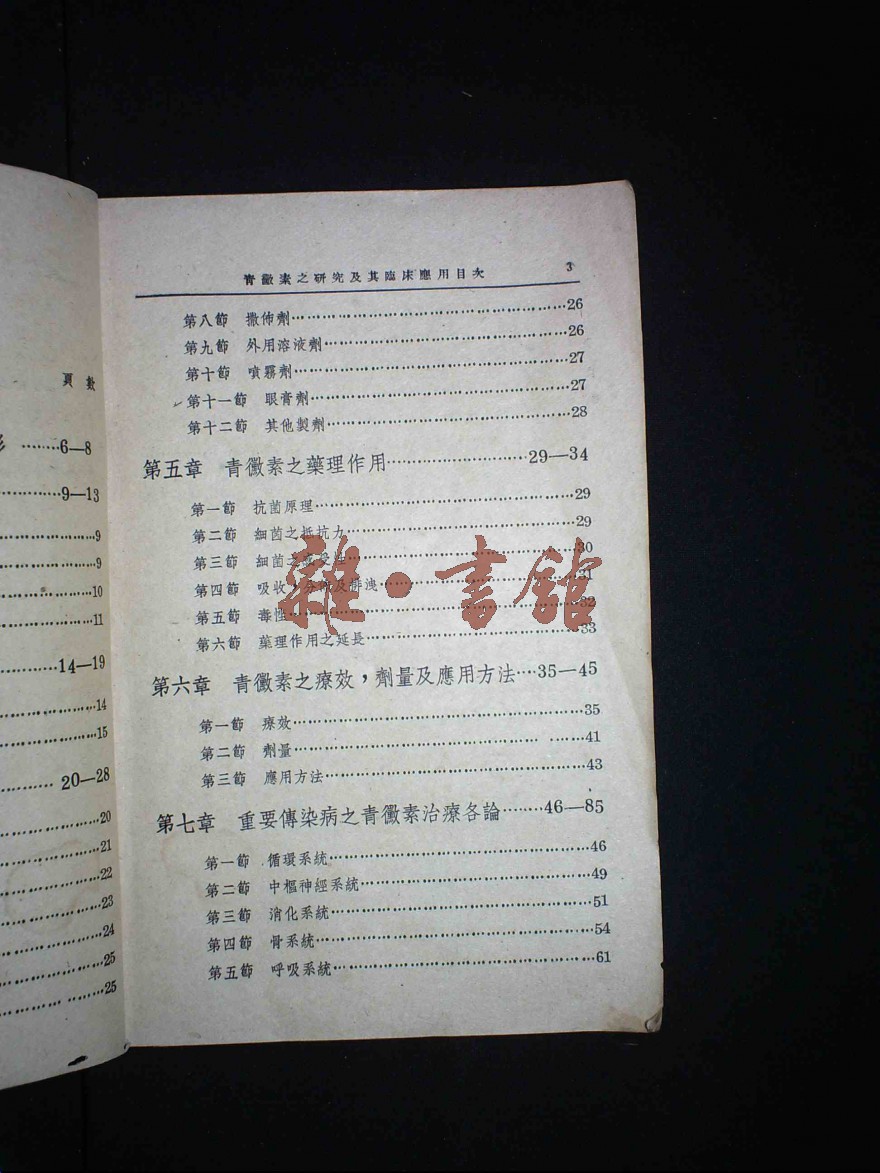 頁數
6—8
9—13
9
9
10
11
14—19
14
15
20—28
20
21
22
23
24
25
25
青黴素之研究及其臨床應用目次 3
第八節 撒佈劑 26
第九節 外用溶液劑 26
第十節 噴霧劑 27
第十一節 眼膏劑 27
第十二節 其他製劑 28
第五章 青黴素之藥理作用 29—34
第一節 抗菌原理 29
第二節 細菌之抵抗力 29
第三節 細菌之感受性 30
第四節 吸收,分佈及排洩 31
第五節 毒性 32
第六節 藥理作用之延長 33
第六章 青黴素之療效,劑量及應用方法 35—45
第一節 療效 35
第二節 劑量 41
第三節 應用方法 43
第七章 重要傳染病之青黴素治療各論 46—85
第一節 循環系統 46
第二節 中樞神經系統 49
第三節 消化系統 51
第四節 骨系統 54
第五節 呼吸系統 61
雜·書館